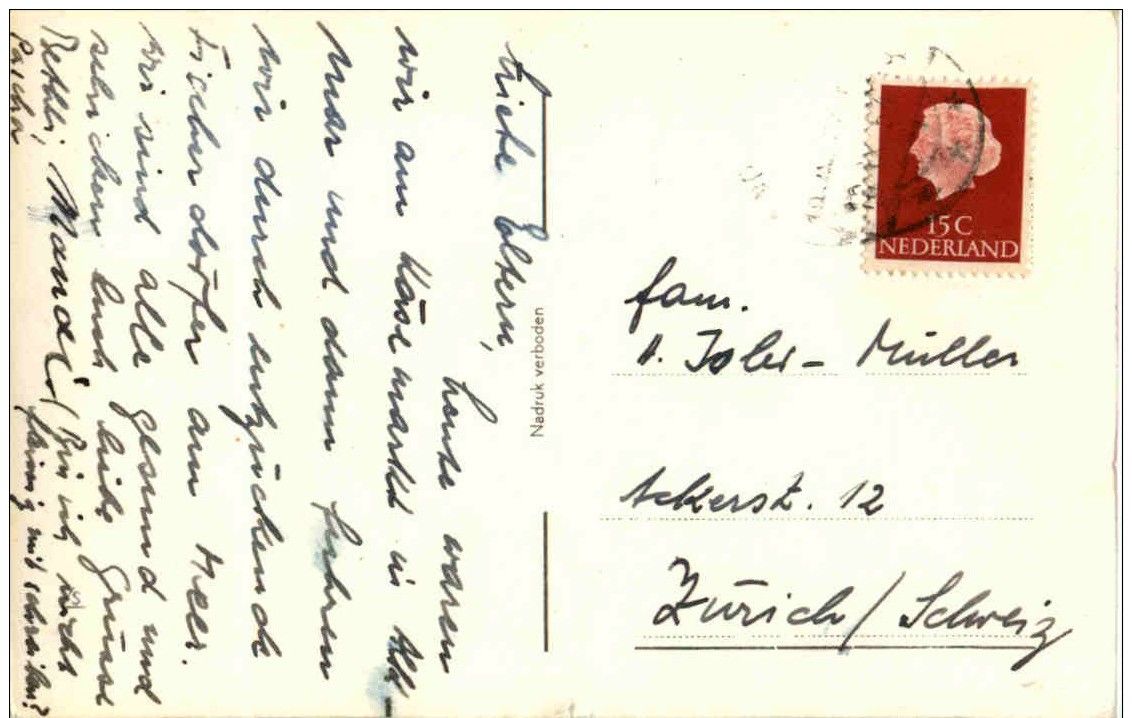 Liebe Eltern,
heute waren
wir am Käsemarkt in Alk
mar und dann fuhren
wir durch entzückende
Fischerdörfer am Meer.
Wir sind alle gesund und
schicken Euch liebe Grüsse
Bethli, Mandi, (Bin ich nicht
Pascha fleissig mit schreiben?
Nadruk verboden
15 C
NEDERLAND
Fam.
A. Isler-Müller
Ackerst. 12
Zürich/Schweiz